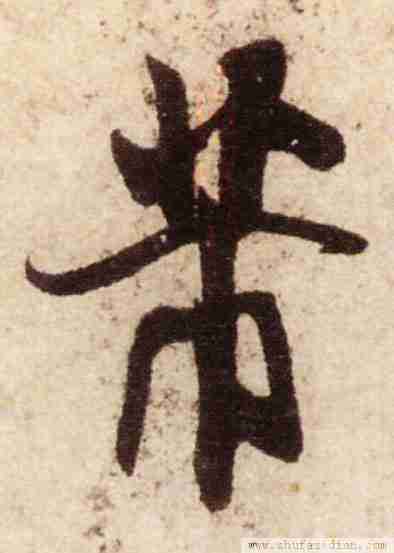 帶
www.shufazidian.com